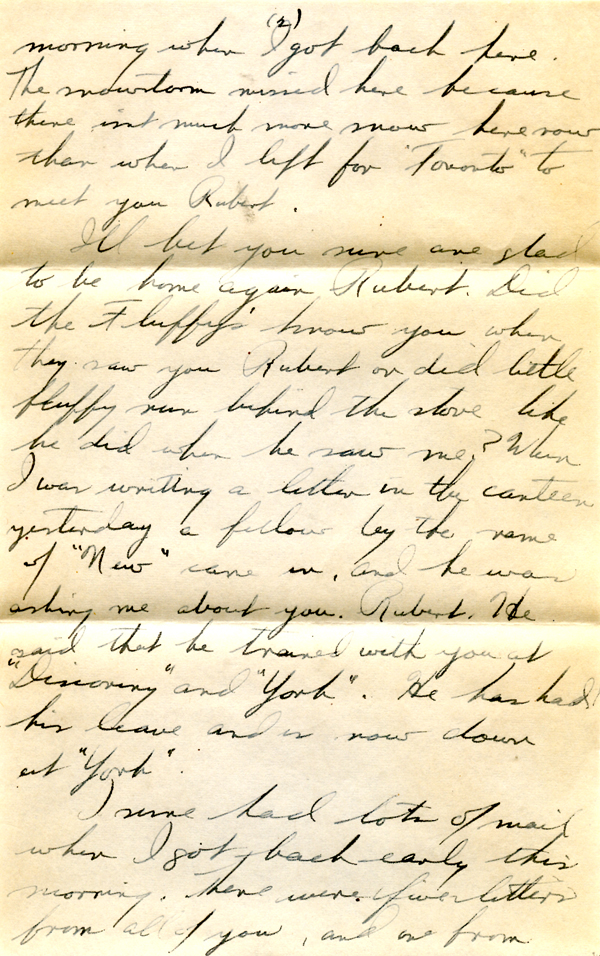 (2)
morning when I got back here.
The snowstorm missed here because
there isnt much more snow here now
than when I left for "Toronto" to
meet you Rubert.
I'll bet you sure are glad
to be home again Rubert. Did
the Fluffy's know you when
they saw you Rubert or did little
fluffy run behind the stove like
he did when he saw me? When
I was writing a letter in the canteen
yesterday a fellow by the name
of "New" came in, and he was
asking me about you. Rubert. He
said that he trained with you at
and "York". He has had
his leave and is now down
at "York".
I sure had lots of mail
when I got back early this
morning. There were five letters
from all of you, and one from